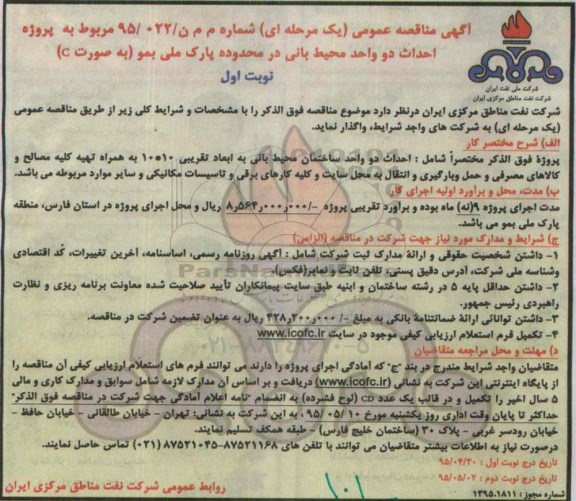 آگهی مناقصه عمومی (یک مرحله ای) شماره م م ن/۰۲۲ /۹۵ مربوط به پروژه
احداث دو واحد محیط بانی در محدوده پارک ملی بمو (به صورت C)
نوبت اول
شرکت ملی نفت ایران
شرکت نفت مناطق مرکزی ایران
شرکت نفت مناطق مرکزی ایران درنظر دارد موضوع مناقصه فوق الذکر را با مشخصات و شرایط کلی زیر از طریق مناقصه عمومی
(یک مرحله ای) به شرکت های واجد شرایط، واگذار نماید.
الف) شرح مختصر کار
پروژۀ فوق الذکر مختصراً شامل : احداث دو واحد ساختمان محیط بانی به ابعاد تقریبی ۱۰*۱۰ به همراه تهیه کلیه مصالح و
کالاهای مصرفی و حمل وبارگیری و انتقال به محل سایت و کلیه کارهای برقی و تاسیسات مکانیکی و سایر موارد مربوطه می باشد.
ب) مدت، محل و برآورد اولیه اجرای کار
مدت اجرای پروژه ۹(نه) ماه بوده و برآورد تقریبی پروژه -/۸٫۵۶۴٫۰۰۰٫۰۰۰ ریال و محل اجرای پروژه در استان فارس، منطقه
پارک ملی بمو می باشد.
ج) شرایط و مدارک مورد نیاز جهت شرکت در مناقصه (الزامی)
۱- داشتن شخصیت حقوقی و ارائۀ مدارک ثبت شرکت شامل : آگهی روزنامه رسمی، اساسنامه، آخرین تغییرات، کُد اقتصادی
وشناسه ملی شرکت، آدرس دقیق پستی، تلفن ثابت و نمابر(فکس)
۲- داشتن حداقل پایه ۵ در رشته ساختمان و ابنیه طبق سایت پیمانکاران تأیید صلاحیت شده معاونت برنامه ریزی و نظارت
راهبردی رئیس جمهور.
۳- داشتن توانائی ارائۀ ضمانتنامۀ بانکی به مبلغ -/۴۲۸٫۲۰۰٫۰۰۰ ریال به عنوان تضمین شرکت در مناقصه.
۴- تکمیل فرم استعلام ارزیابی کیفی موجود در سایت www.icofc.ir
د) مهلت و محل مراجعه متقاضیان
متقاضیان واجد شرایط مندرج در بند "ج" که آمادگی اجرای پروژه را دارند می توانند فرم های استعلام ارزیابی کیفی آن مناقصه را
از پایگاه اینترنتی این شرکت به نشانی (www.icofc.ir) دریافت و بر اساس آن مدارک لازمه شامل سوابق و مدارک کاری و مالی
۵ سال اخیر را تکمیل و در قالب یک عدد CD (لوح فشرده) به انضمام "نامه اعلام آمادگی جهت شرکت در مناقصه فوق الذکر"
حداکثر تا پایان وقت اداری روز یکشنبه مورخ ۱۰/ ۰۵/ ۹۵ به این شرکت به نشانی: تهران - خیابان طالقانی - خیابان حافظ -
خیابان رودسر غربی - پلاک ۳۰ (ساختمان خلیج فارس) - طبقه همکف تسلیم نمایند.
درصورت نیاز به اطلاعات بیشتر متقاضیان می توانند با تلفن های ۸۷۵۲۱۱۶۸-۸۷۵۲۱۰۴۵ (۰۲۱) تماس حاصل نمایند.
تاریخ درج نوبت اول : ۹۵/۰۴/۳۰
تاریخ درج نوبت دوم : ۹۵/۰۵/۰۲
شماره مجوز : ۱۳۹۵.۱۸۱۱
روابط عمومی شرکت نفت مناطق مرکزی ایران